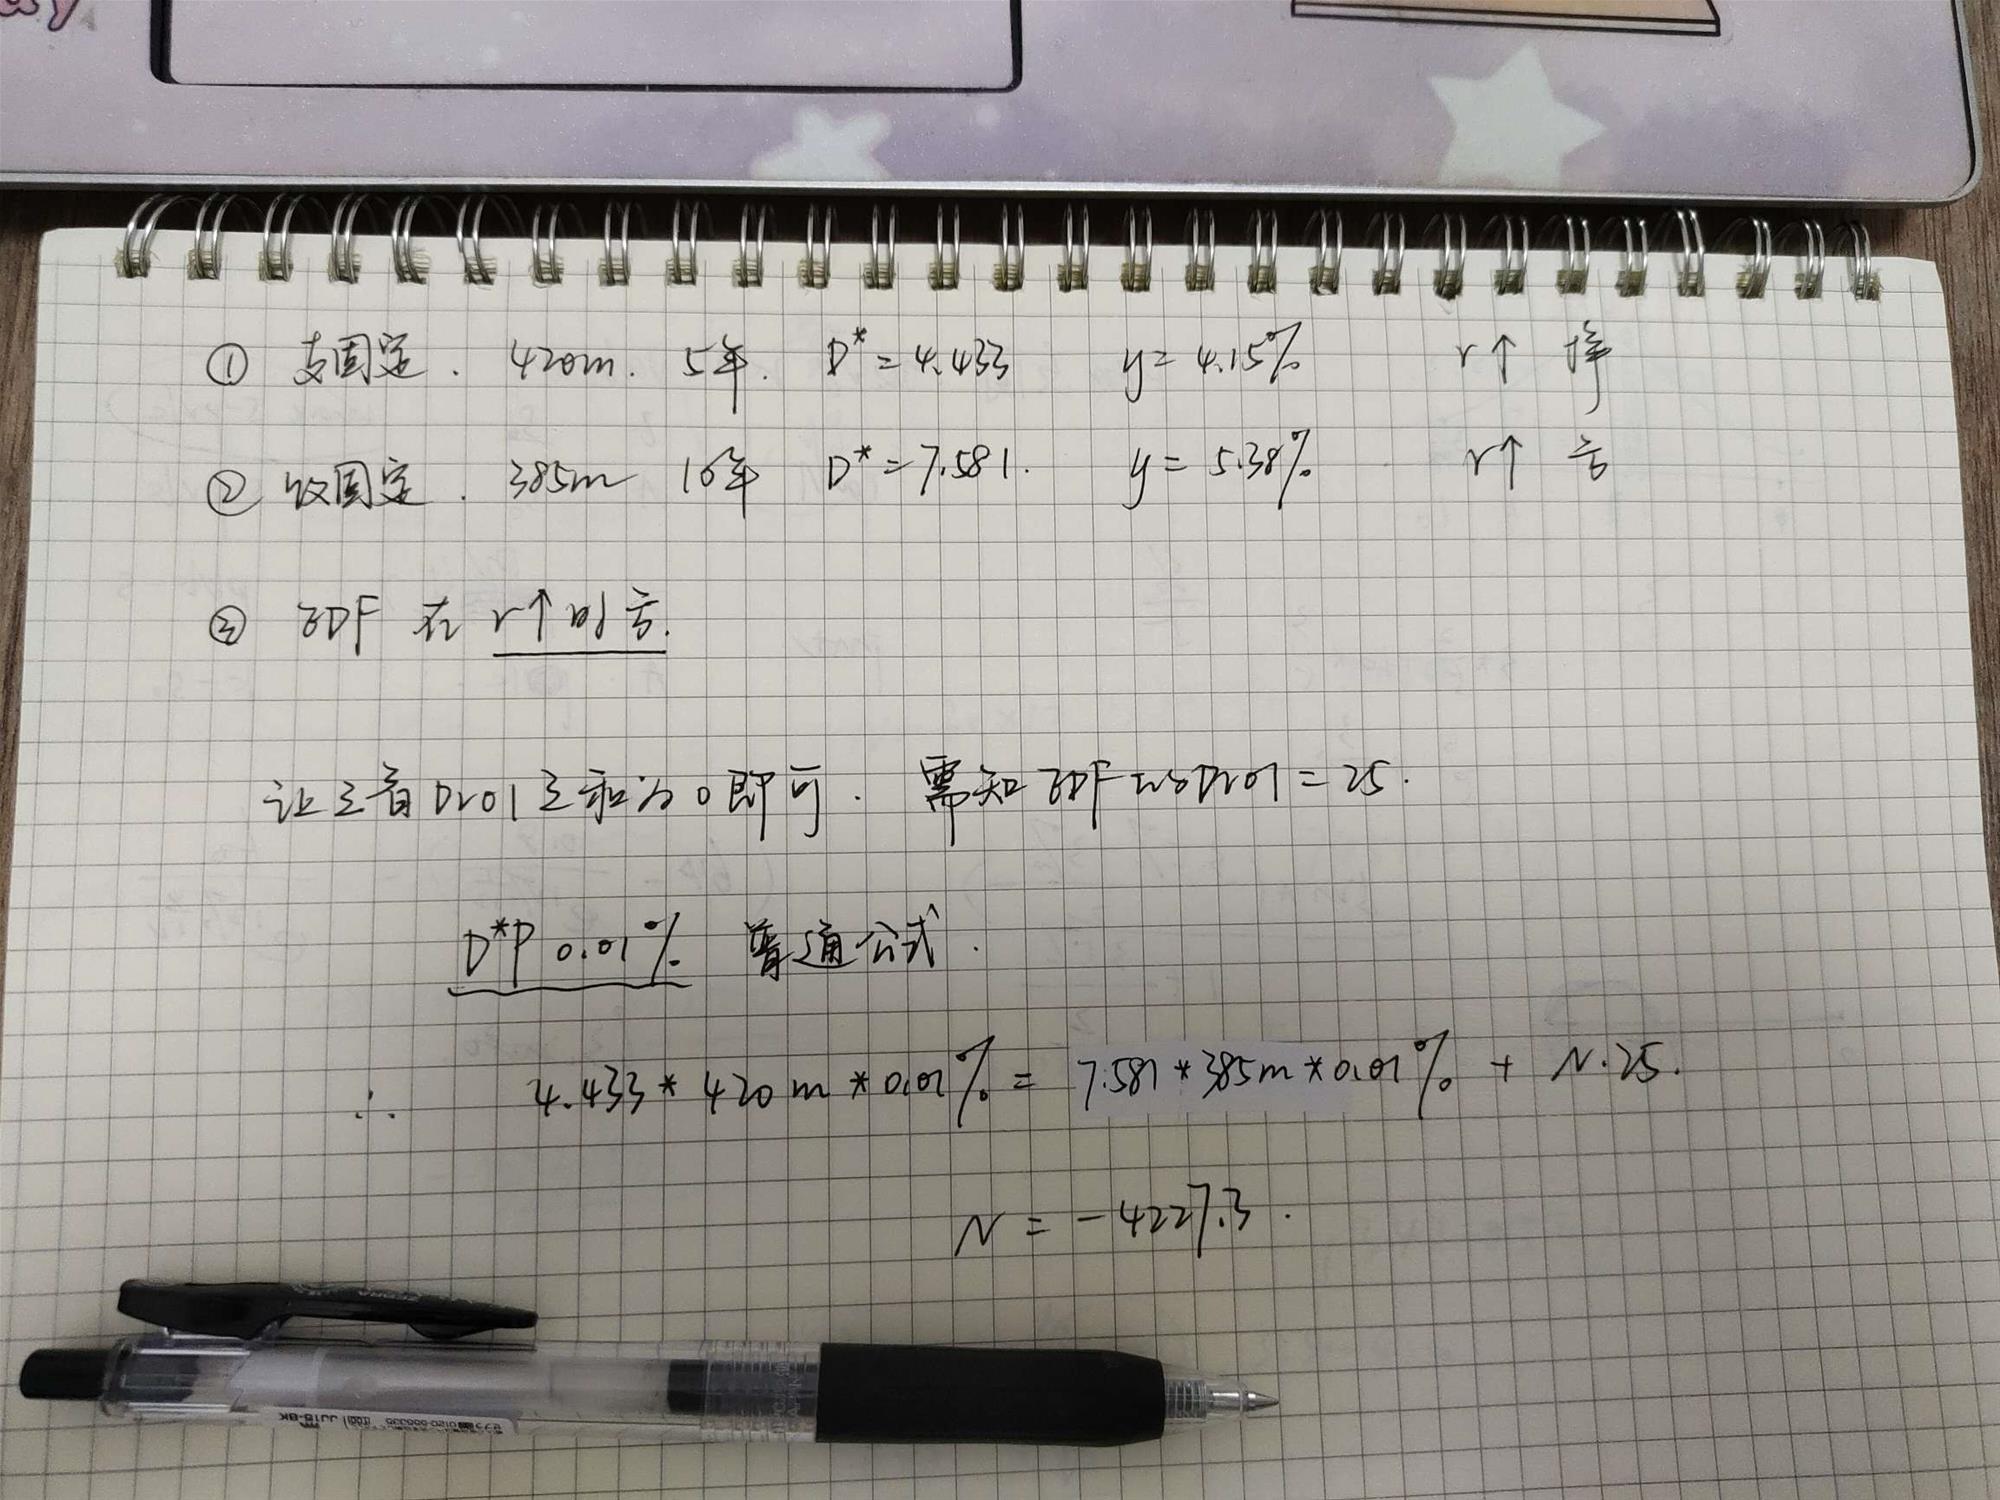 ① 支固定. 420m. 5年. D* = 4.433 y = 4.15% r↑ 挣
② 收固定. 385m 10年 D* = 7.581. y = 5.38% r↑ 亏
③ EDF 在 r↑时亏.
让三者DV01之和为0即可. 需知EDF的DV01 = 25.
D*P 0.01% 普通公式.
∴ 4.433 * 420m * 0.01% = 7.581 * 385m * 0.01% + N·25.
N = -4227.3.
JJ15-BK